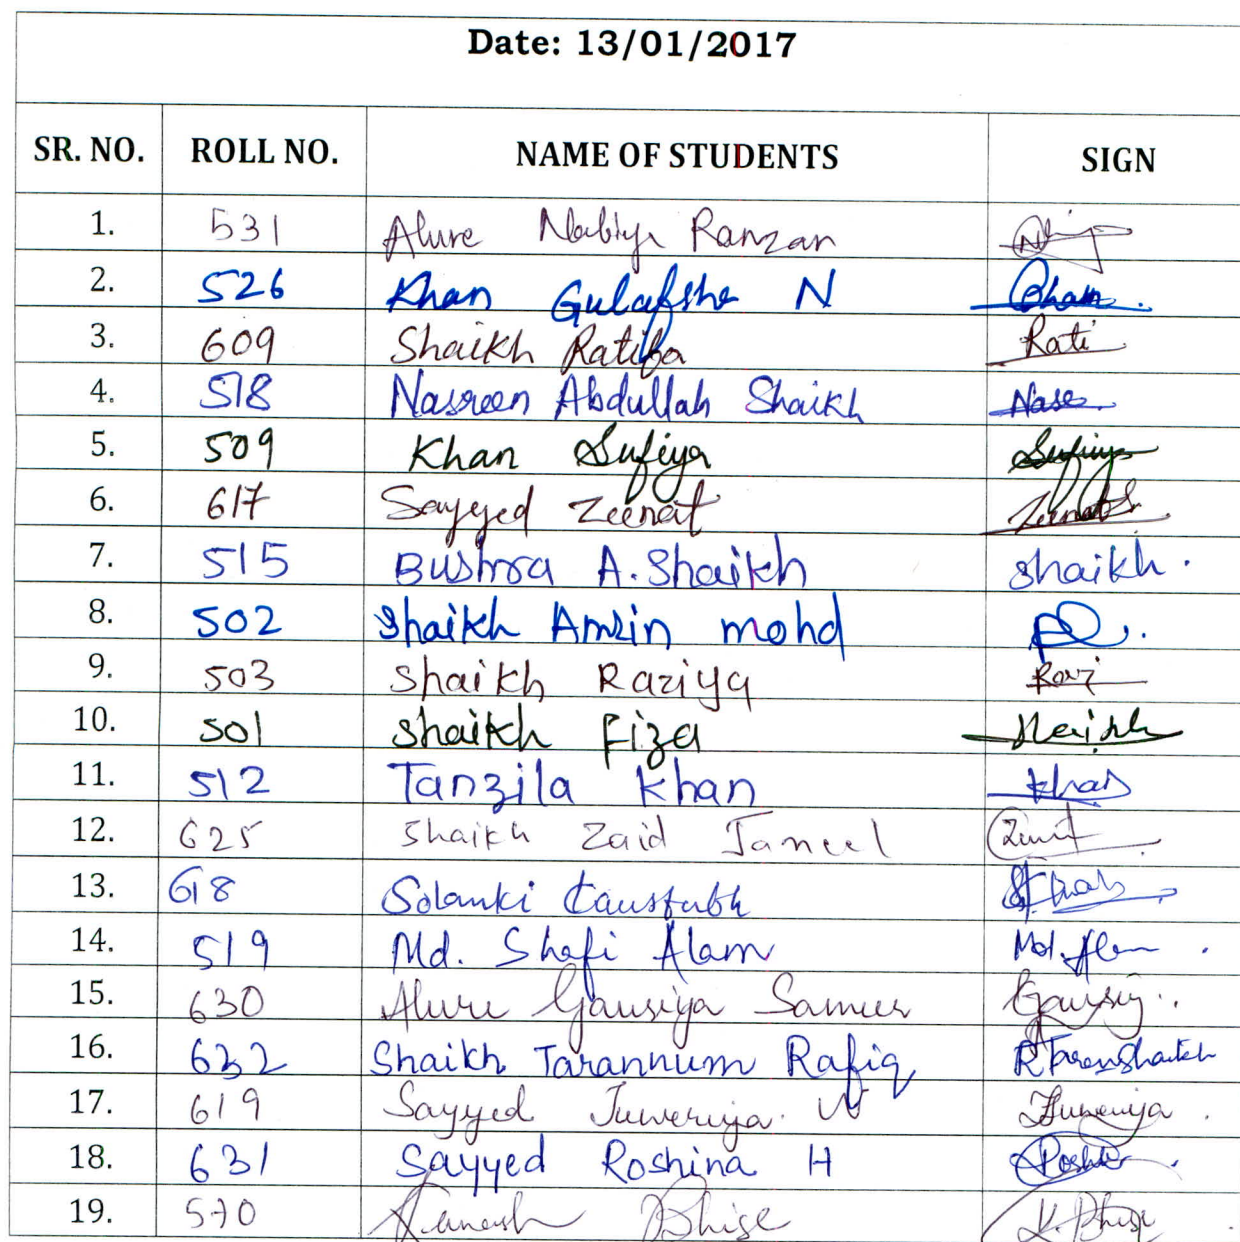 Date: 13/01/2017
SR. NO. ROLL NO. NAME OF STUDENTS SIGN
1. 531 Alure Nabiya Ramzan
2. 526 Khan Gulafsha N
3. 609 Shaikh Ratiba Rati
4. 518 Nasreen Abdullah Shaikh Nase
5. 509 Khan Sufiya Sufiya
6. 617 Sayyed Zeenat Zeenat S.
7. 515 Bushra A. Shaikh Shaikh.
8. 502 Shaikh Amrin mohd
9. 503 Shaikh Raziya Razi
10. 501 Shaikh Fiza Shaikh
11. 512 Tanzila Khan Khan
12. 625 Shaikh Zaid Jameel
13. 618 Solanki Kaustubh
14. 519 Md. Shafi Alam Md. Alam
15. 630 Alure Gausiya Sameer Gausiy
16. 632 Shaikh Tarannum Rafiq
17. 619 Sayyed Juweriya N Juweriya
18. 631 Sayyed Roshina H
19. 570 Bhise K. Bhise